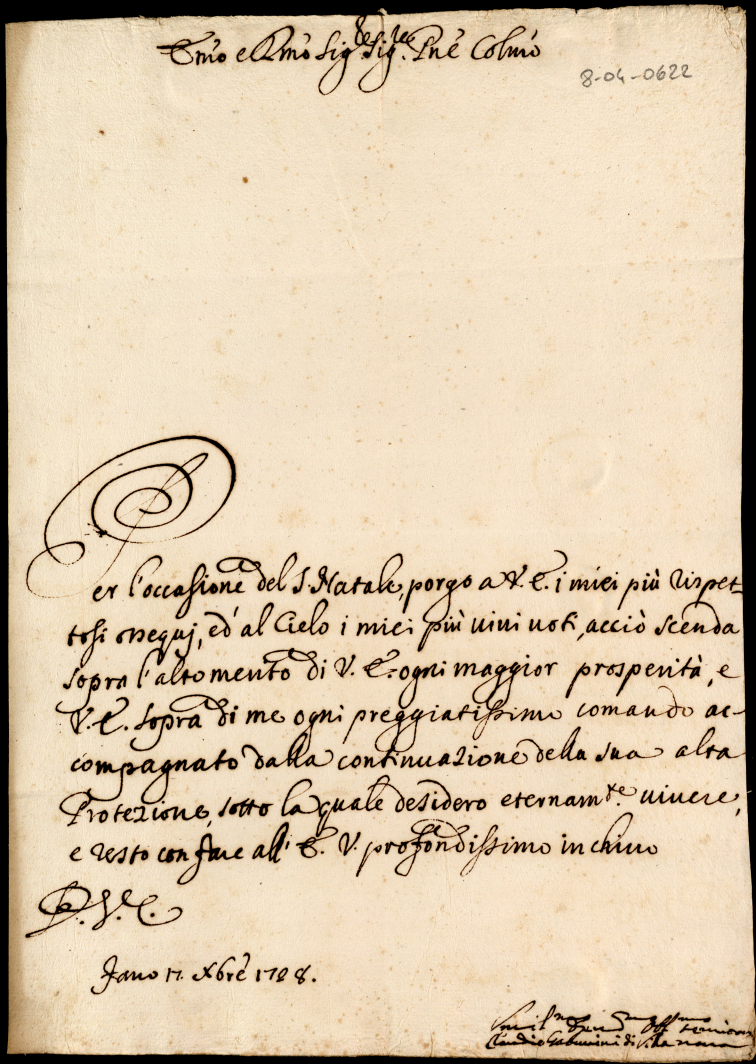 Emo e Rmo Sig.r Sig.re Pne Colmo
8-04-0622
Per l'occasione del S. Natale, porgo a V. E. i miei più rispet-
tosi ossequj, ed al Cielo i miei più vivi voti, acciò scenda
sopra l'alto merito di V. E. ogni maggior prosperità, e
V. E. sopra di me ogni preggiatissimo comando ac-
compagnato dalla continuazione della sua alta
Protezione, sotto la quale desidero eternam.te vivere,
e resto con fare all' E. V. profondissimo inchino
D. V. E.
Fano 17. Xbre 1728.
Claudio Gabuccini di